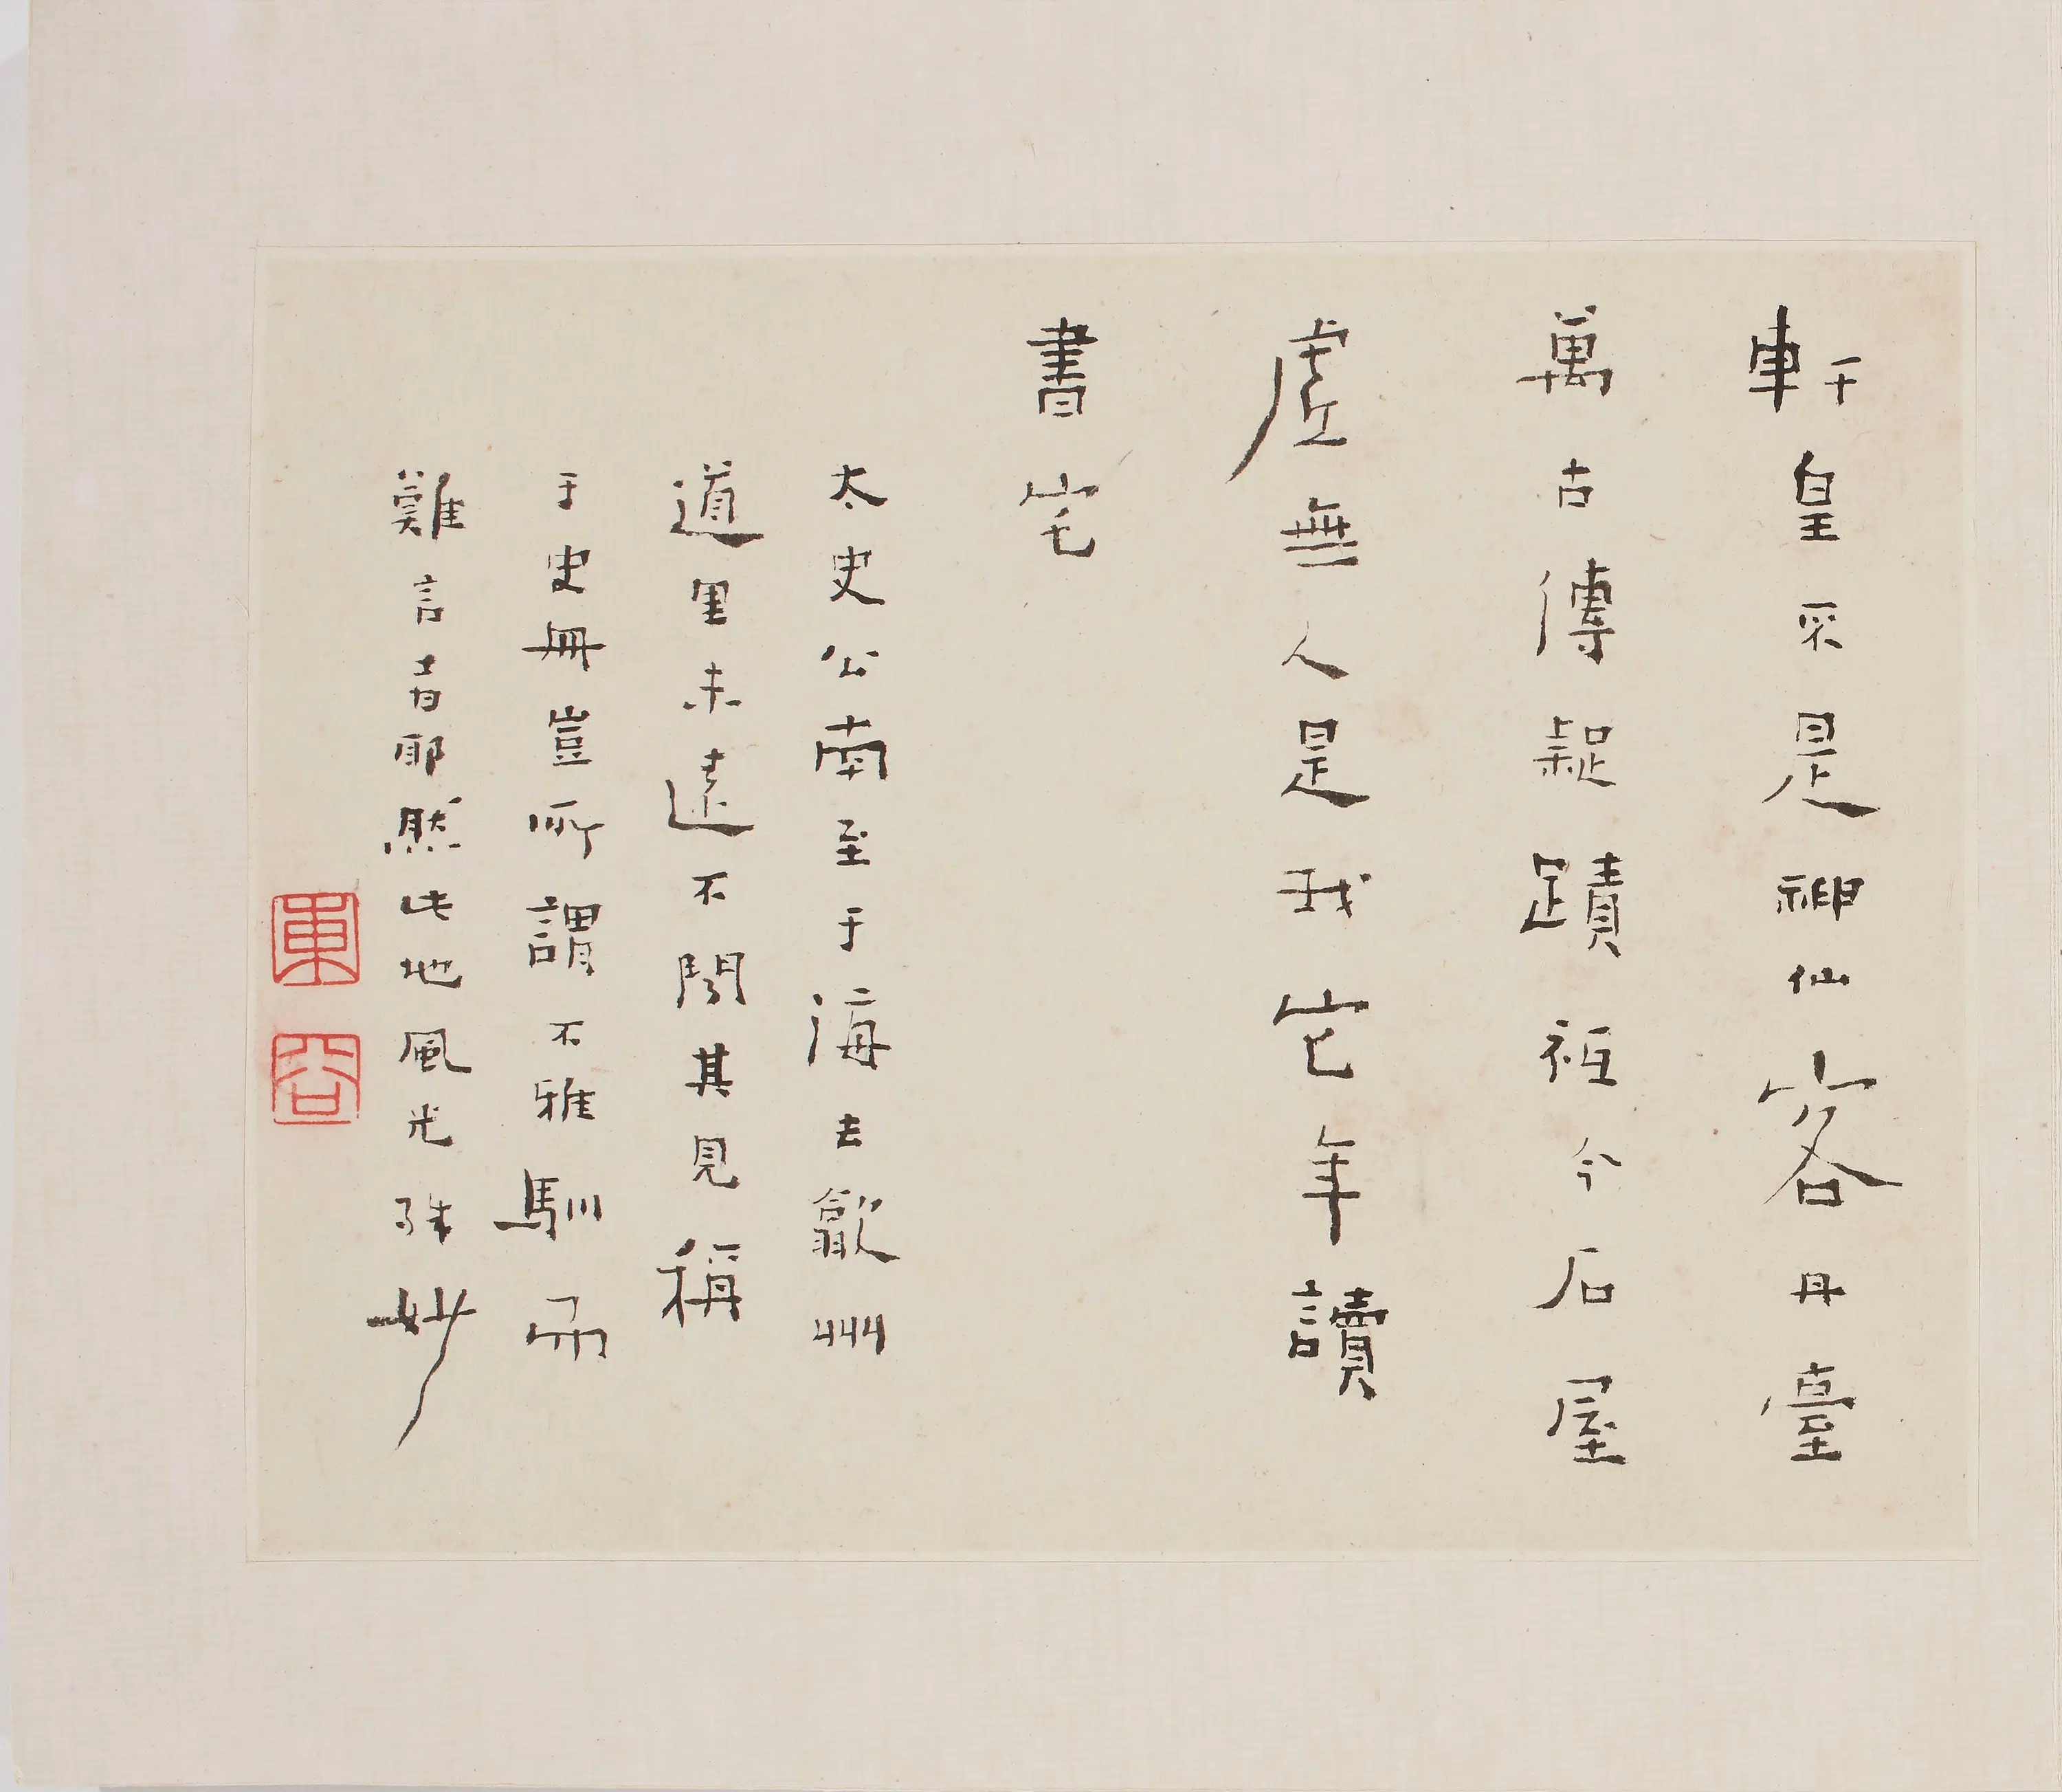 軒皇不是神仙客丹臺
萬古傳疑蹟祇今石屋
虛無人是我它年讀
書宅
太史公南至于海去歙州
道里未遠不聞其見稱
于史冊豈所謂不雅馴而
難言者耶然此地風光殊妙
東
谷